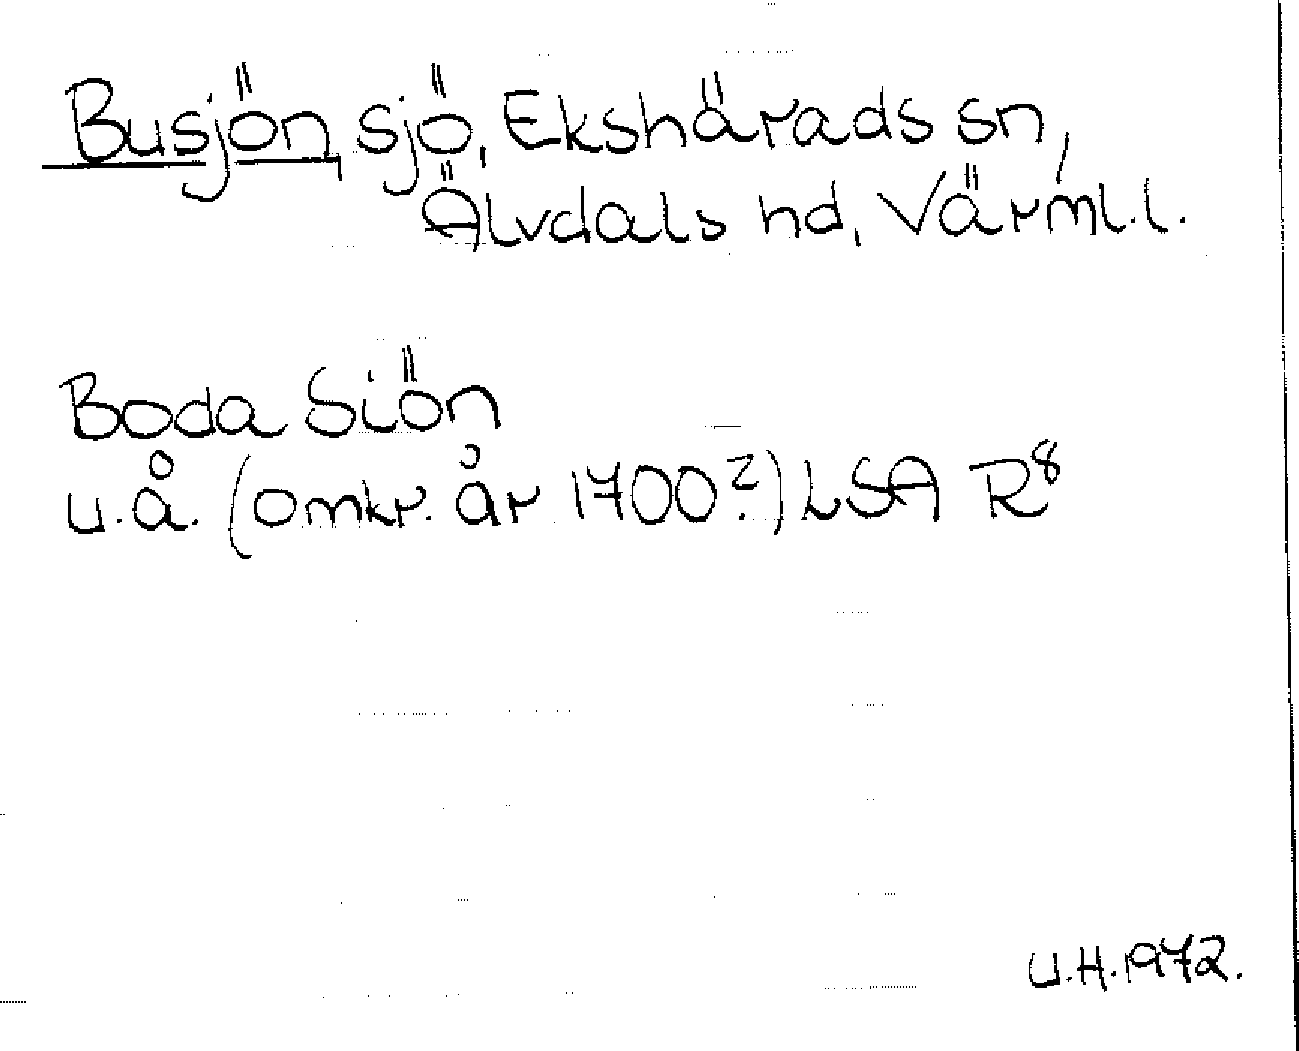 Busjön, sjö, Ekshärads sn,
Älvdals hd, Värml. l.
Boda Siön
u.å. (omkr. år 1700?) LSA R8
U.H. 1972.